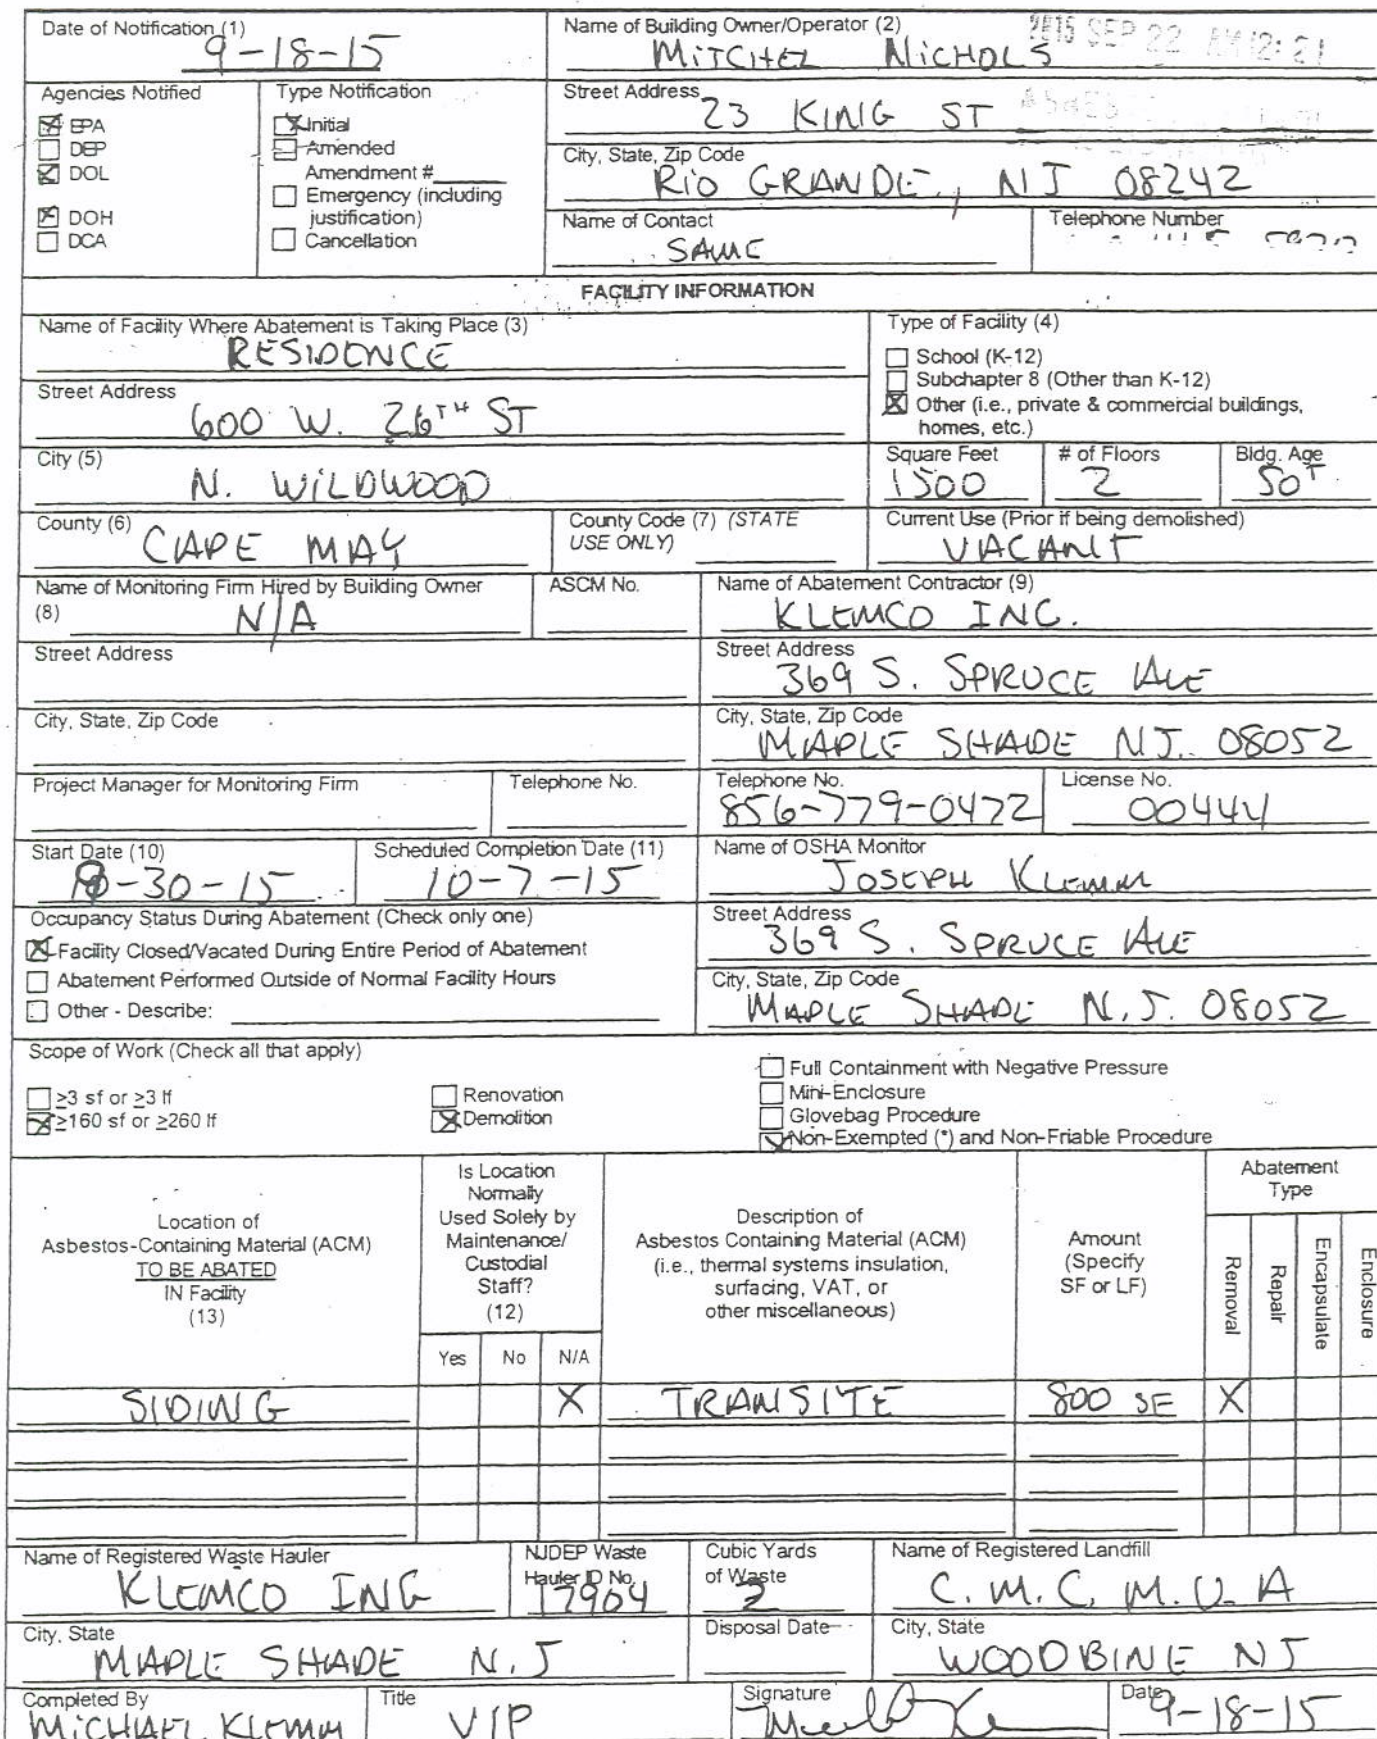 Date of Notification (1)
9-18-15
Name of Building Owner/Operator (2)
MITCHEL NICHOLS
2015 SEP 22 AM 12:21
Agencies Notified
EPA
DEP
DOL
DOH
DCA
Type Notification
Initial
Amended
Amendment #
Emergency (including
justification)
Cancellation
Street Address
23 KING ST
City, State, Zip Code
RIO GRANDE, NJ 08242
Name of Contact
SAME
Telephone Number
FACILITY INFORMATION
Name of Facility Where Abatement is Taking Place (3)
RESIDENCE
Street Address
600 W. 26TH ST
City (5)
N. WILDWOOD
Type of Facility (4)
School (K-12)
Subchapter 8 (Other than K-12)
X Other (i.e., private & commercial buildings,
homes, etc.)
Square Feet
1500
# of Floors
2
Bldg. Age
50+
County (6)
CAPE MAY
County Code (7) (STATE
USE ONLY)
Current Use (Prior if being demolished)
VACANT
Name of Monitoring Firm Hired by Building Owner
(8)
N/A
ASCM No.
Name of Abatement Contractor (9)
KLEMCO INC.
Street Address
Street Address
369 S. SPRUCE AVE
City, State, Zip Code
City, State, Zip Code
MAPLE SHADE NJ. 08052
Project Manager for Monitoring Firm
Telephone No.
Telephone No.
856-779-0472
License No.
00444
Start Date (10)
-30-15
Scheduled Completion Date (11)
10-7-15
Name of OSHA Monitor
JOSEPH KLEMM
Occupancy Status During Abatement (Check only one)
X Facility Closed/Vacated During Entire Period of Abatement
Abatement Performed Outside of Normal Facility Hours
Other - Describe:
Street Address
369 S. SPRUCE AVE
City, State, Zip Code
MAPLE SHADE N.J. 08052
Scope of Work (Check all that apply)
≥3 sf or ≥3 lf
≥160 sf or ≥260 lf
Renovation
X Demolition
Full Containment with Negative Pressure
Mini-Enclosure
Glovebag Procedure
Non-Exempted (*) and Non-Friable Procedure
Location of
Asbestos-Containing Material (ACM)
TO BE ABATED
IN Facility
(13)
Is Location
Normally
Used Solely by
Maintenance/
Custodial
Staff?
(12)
Yes No N/A
Description of
Asbestos Containing Material (ACM)
(i.e., thermal systems insulation,
surfacing, VAT, or
other miscellaneous)
Amount
(Specify
SF or LF)
Abatement
Type
Removal
Repair
Encapsulate
Enclosure
SIDING X TRANSITE 800 SF X
Name of Registered Waste Hauler
KLEMCO INC
NJDEP Waste
Hauler ID No.
17904
Cubic Yards
of Waste
2
Name of Registered Landfill
C.M.C.M.U.A
City, State
MAPLE SHADE N.J
Disposal Date
City, State
WOODBINE NJ
Completed By
MICHAEL KLEMM
Title
V/P
Signature
Date
9-18-15